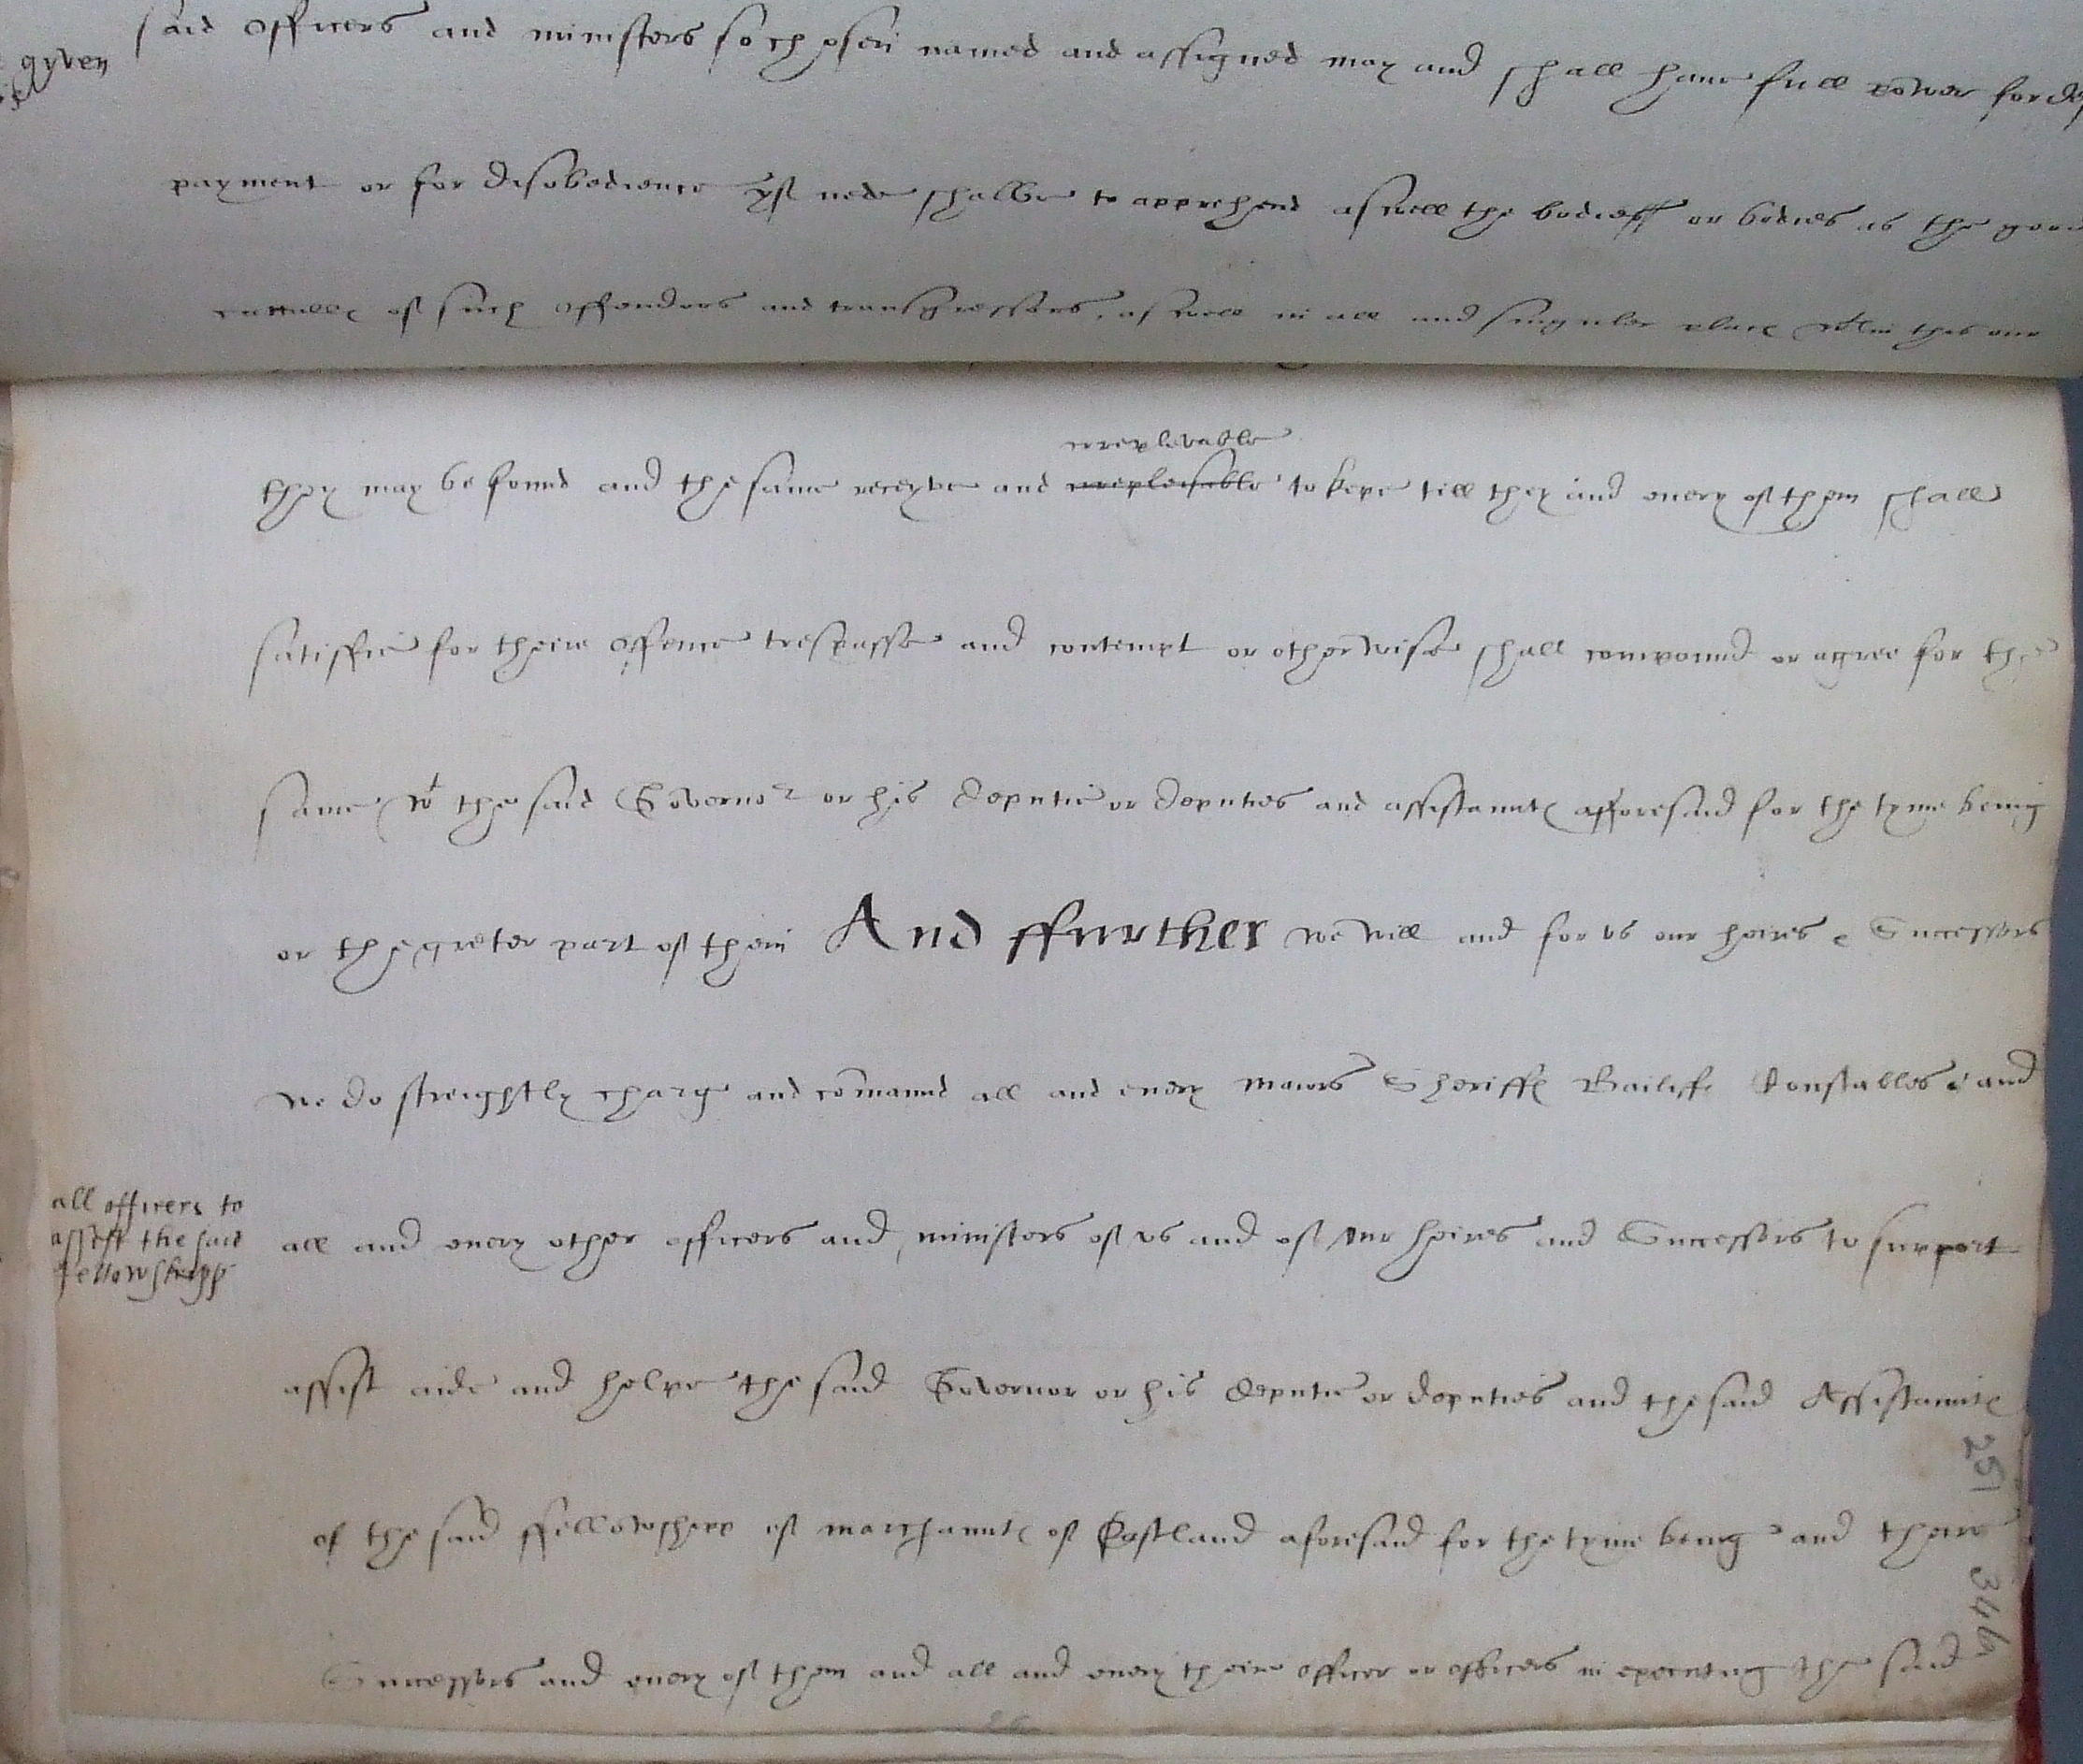 gyven
said officers and ministers so chosen named and assigned may and shall have full power for
payment or for disobedience yf nede shalbe to apprehend aswell the bodie or bodies as the
cattalles of such offendors and transgressors, aswell in all and singuler places wthin this our
irreplevable
they may be found and the same receyve and to kepe till they and every of them shall
satisffie for theire offence trespasse and contempt or otherwise shall compound or agree for the
same wt the said Governor or his deputie or deputies and assistauntes afforesaid for the tyme being
or the greter part of them And ffurther we will and for us our heires & Successors
we do streightly charg and comaund all and every maiors Sheriffes Bailifes Constables & and
all officers to
assist the said
fellowshipp
all and every other officers and ministers of us and of our heires and Successors to support
assist aide and helpe the said Governor or his deputie or deputies and the said Assistauntes
of the said ffellowshipp of marchauntes of Eastland aforesaid for the tyme being and theire
Successors and every of them and all and every theire officer or officers in executing the said
251
346